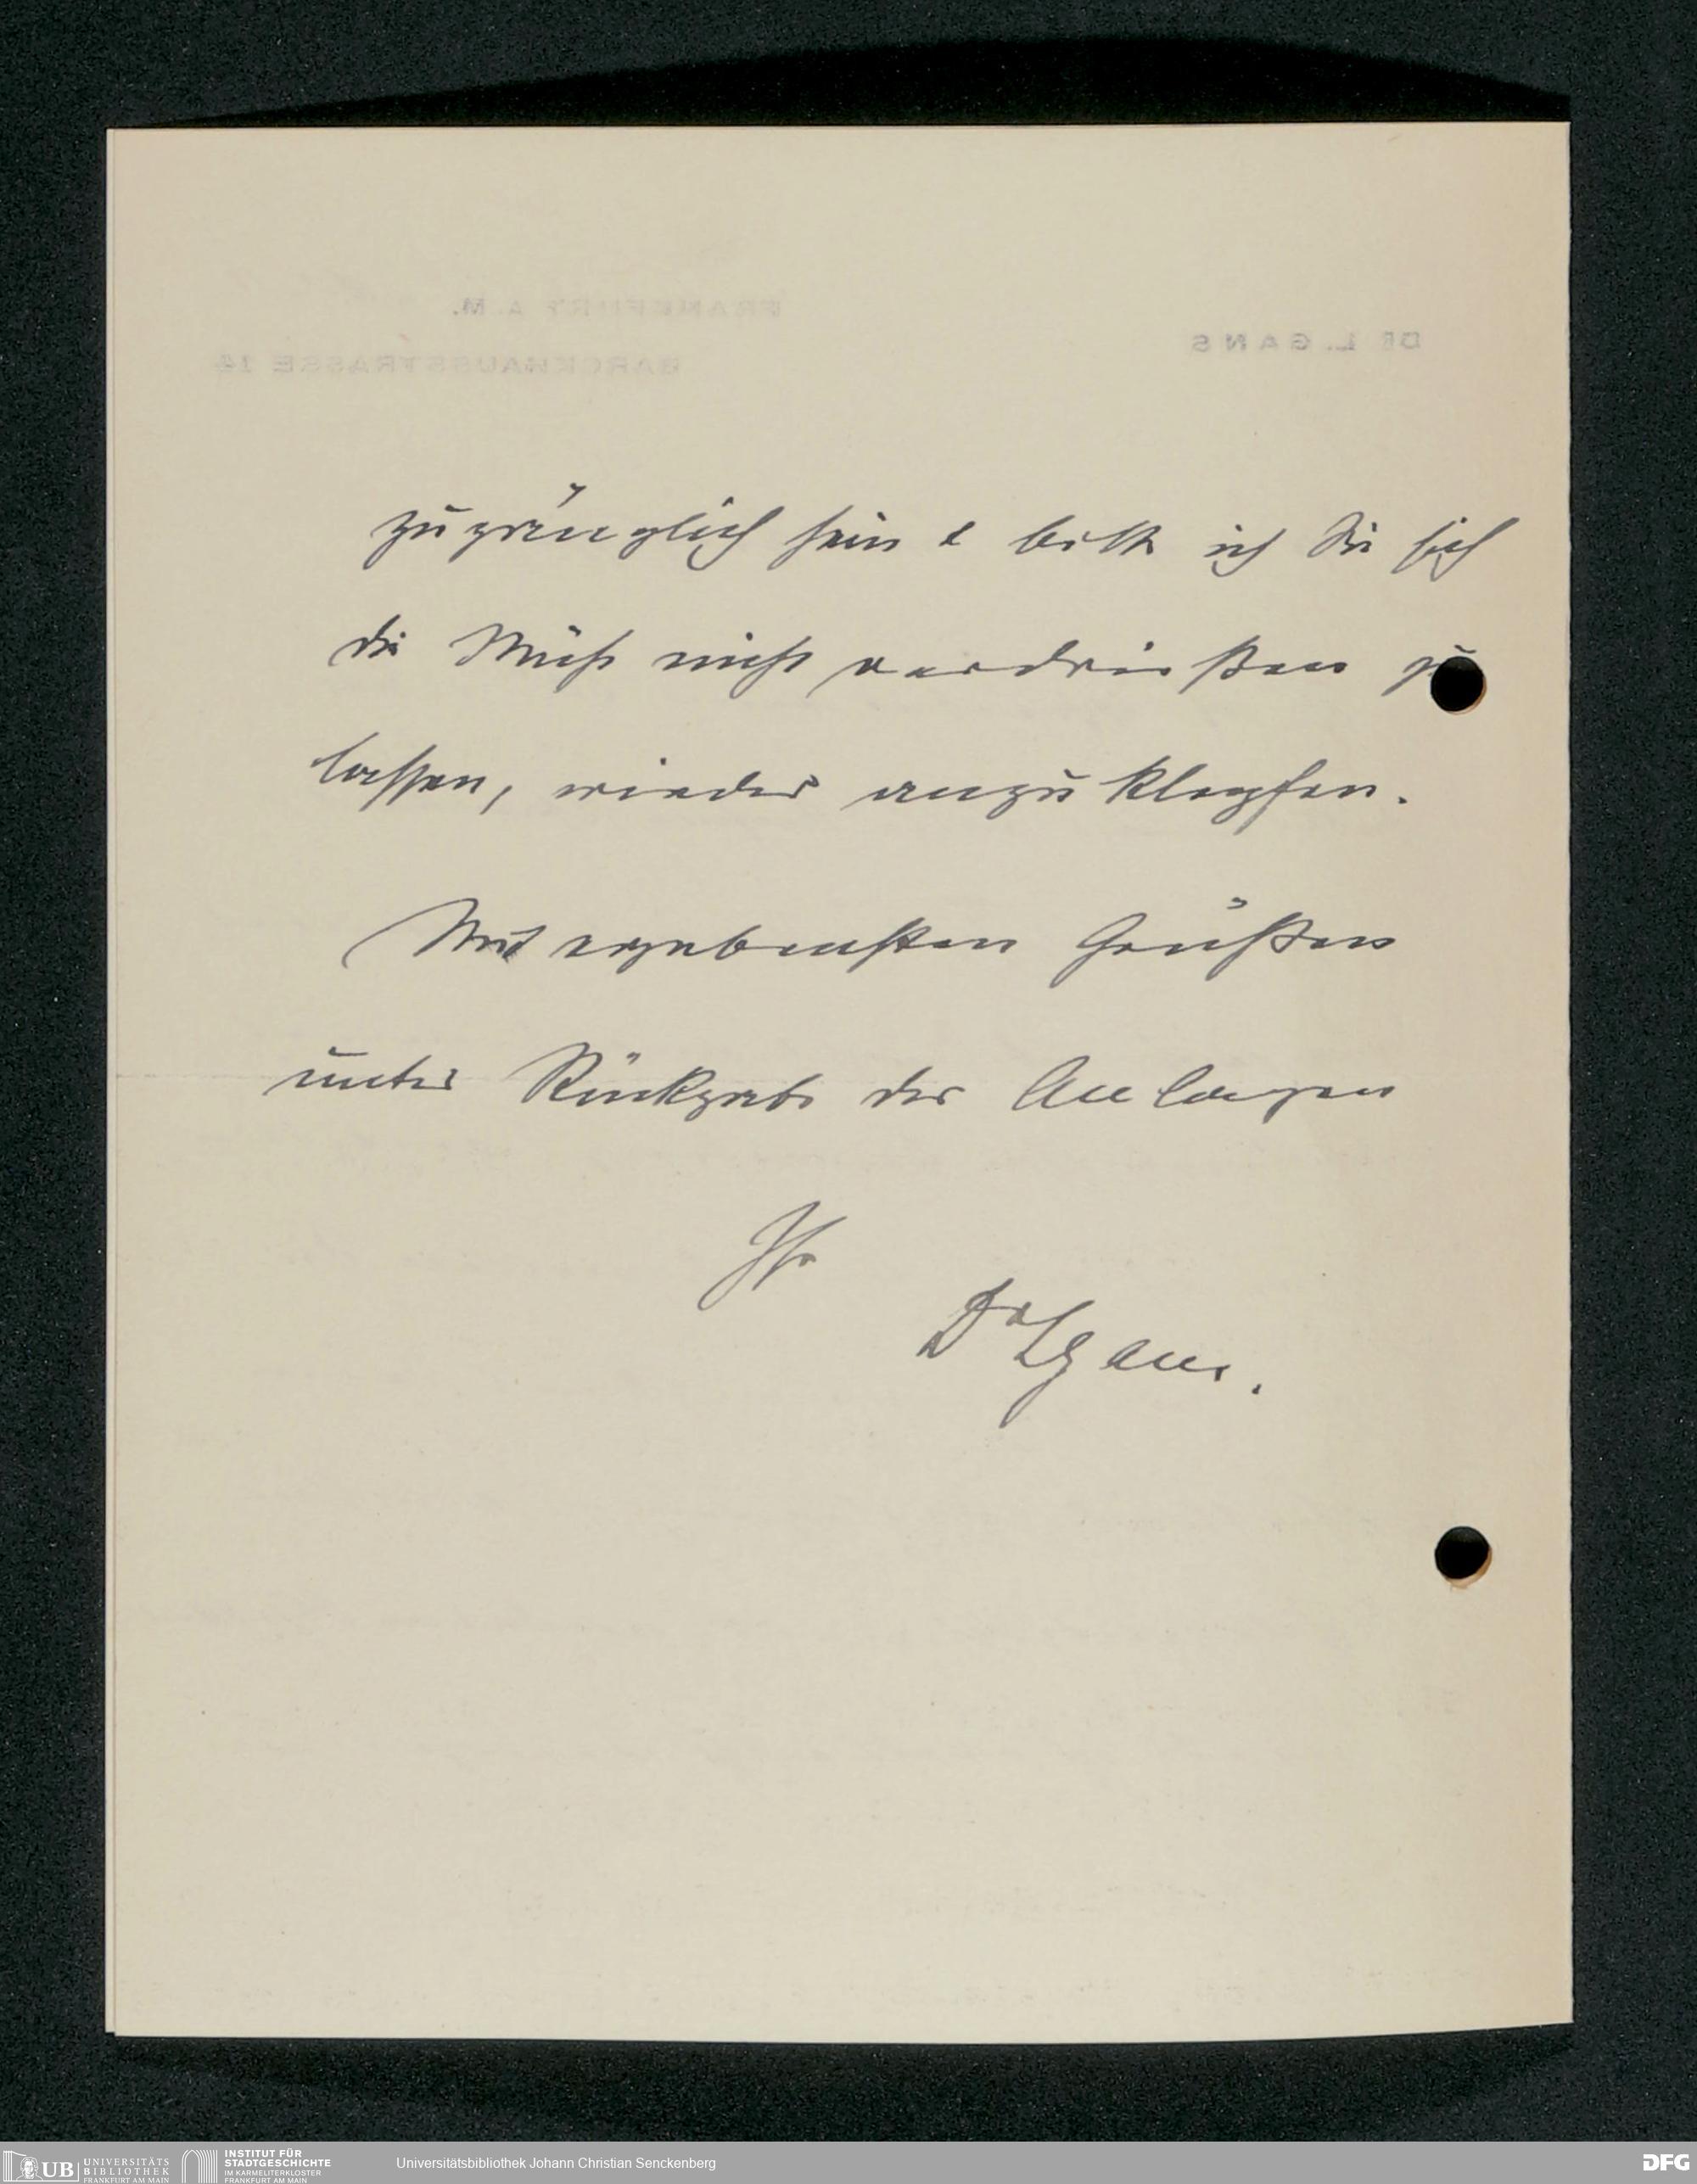 zugänglich sein & bitte ich Sie sich
die Mühe nicht verdrießen zu
lassen, wieder anzuklopfen.
Mit ergebensten Grüßen
unter Rückgabe der Anlagen
Ihr
Dr LGans.
FRANKFURT A. M.
BARCKHAUSSTRASSE 14
DR L. GANS
UB UNIVERSITÄTS BIBLIOTHEK FRANKFURT AM MAIN
INSTITUT FÜR STADTGESCHICHTE IM KARMELITERKLOSTER FRANKFURT AM MAIN
Universitätsbibliothek Johann Christian Senckenberg
DFG